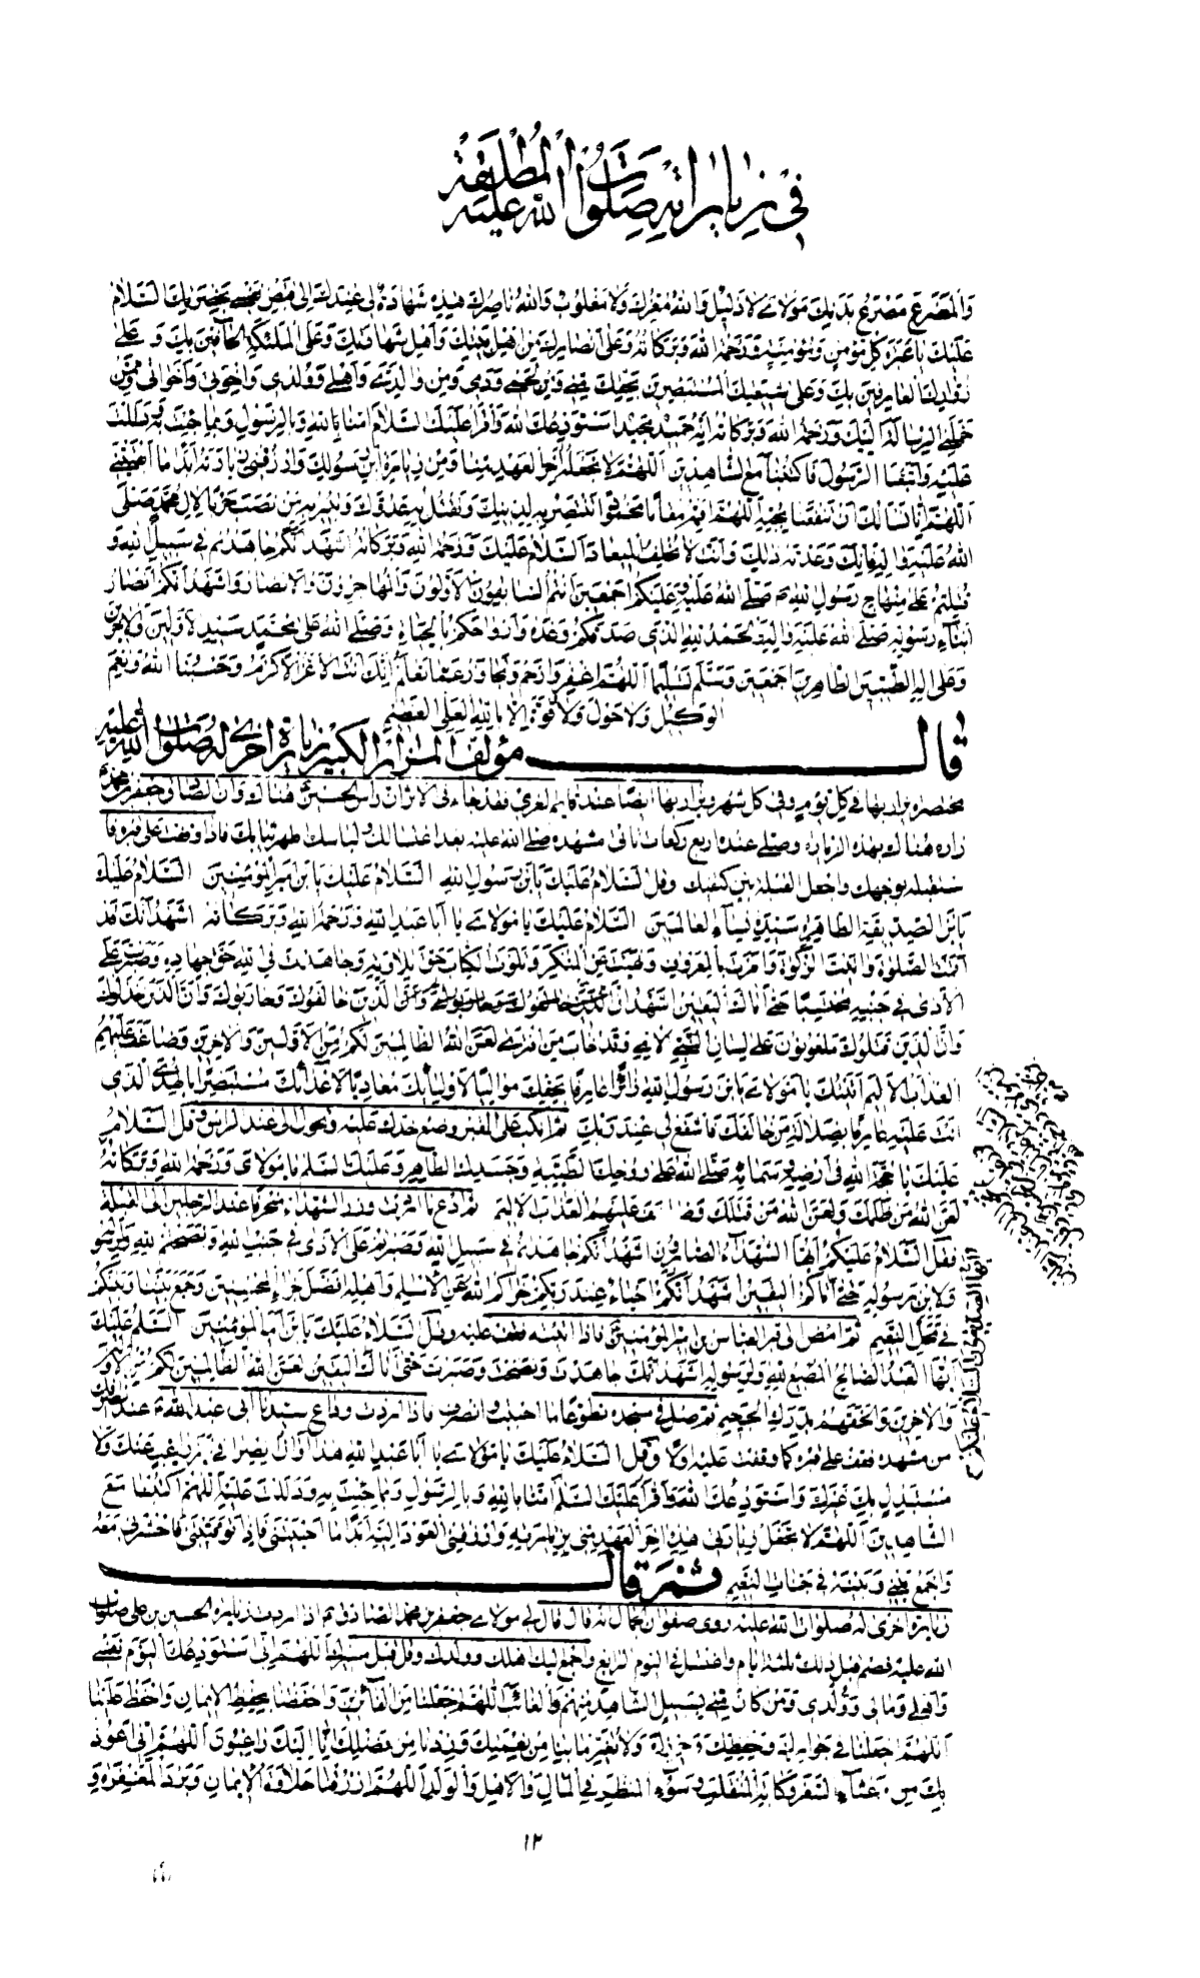 في زياراته صلوات الله عليه المطلقة
وَالْمُضَرَّعِ مَصْرَعُ بَدَنِكَ مَوْلَايَ لَا ذَلِيلٌ وَاللهُ مُعِزُّكَ وَلَا مَغْلُوبٌ وَاللهُ نَاصِرُكَ هٰذِهِ شَهَادَةٌ لِي عِنْدَكَ إِلَى قَبْضِ نَفْسِي بِحَضْرَتِكَ السَّلَامُ
عَلَيْكَ يَا كُلِّ مُؤْمِنٍ وَمُؤْمِنَةٍ وَرَحْمَةُ اللهِ وَبَرَكَاتُهُ وَعَلَى أَنْصَارِكَ مِنْ أَهْلِ بَيْتِكَ وَأَهْلِ شَهَادَتِكَ وَعَلَى الْمَلٰئِكَةِ الْحَافِّينَ بِكَ وَعَلَى
زُوَّارِكَ الْعَارِفِينَ بِكَ وَعَلَى شِيعَتِكَ الْمُسْتَبْصِرِينَ بِحَقِّكَ مِنِّي وَمِنْ لَحْمِي وَدَمِي وَمِنْ وَالِدَيَّ وَأَهْلِي وَوُلْدِي وَإِخْوَتِي وَأَخَوَاتِي وَمِمَّنْ
حَمَّلَنِي الرِّسَالَةَ إِلَيْكَ وَرَحْمَةُ اللهِ وَبَرَكَاتُهُ إِنَّهُ حَمِيدٌ مَجِيدٌ أَسْتَوْدِعُكَ اللهَ وَأَقْرَأُ عَلَيْكَ السَّلَامَ آمَنَّا بِاللهِ وَبِالرَّسُولِ وَبِمَا جِئْتَ بِهِ وَدَلَلْتَ
عَلَيْهِ وَاتَّبَعْنَا الرَّسُولَ فَاكْتُبْنَا مَعَ الشَّاهِدِينَ اَللّٰهُمَّ لَا تَجْعَلْهُ آخِرَ الْعَهْدِ مِنَّا وَمِنْ زِيَارَةِ ابْنِ رَسُولِكَ وَارْزُقْنِي زِيَارَتَهُ أَبَدًا مَا أَبْقَيْتَنِي
اَللّٰهُمَّ إِنَّا نَسْأَلُكَ أَنْ تَنْفَعَنَا بِحُبِّهِ اَللّٰهُمَّ ابْعَثْهُ مَقَامًا مَحْمُودًا تَنْتَصِرُ بِهِ لِدِينِكَ وَتَقْتُلُ بِهِ عَدُوَّكَ وَتُبِيرُ بِهِ مَنْ نَصَبَ حَرْبًا لِآلِ مُحَمَّدٍ صَلَّى
اللهُ عَلَيْهِ وَآلِهِ فَإِنَّكَ وَعَدْتَهُ ذٰلِكَ وَأَنْتَ لَا تُخْلِفُ الْمِيعَادَ السَّلَامُ عَلَيْكَ وَرَحْمَةُ اللهِ وَبَرَكَاتُهُ أَشْهَدُ أَنَّكُمْ جَاهَدْتُمْ فِي سَبِيلِ اللهِ وَ
قُتِلْتُمْ عَلَى مِنْهَاجِ رَسُولِ اللهِ صَلَّى اللهُ عَلَيْهِ وَعَلَيْكُمْ أَجْمَعِينَ أَنْتُمُ السَّابِقُونَ الْأَوَّلُونَ وَالْمُهَاجِرُونَ وَالْأَنْصَارُ وَأَشْهَدُ أَنَّكُمْ أَنْصَارُ
أَبْنَاءِ رَسُولِهِ صَلَّى اللهُ عَلَيْهِ وَآلِهِ وَالْحَمْدُ لِلّٰهِ الَّذِي صَدَقَكُمْ وَعْدَهُ وَأَرَاكُمْ مَا تُحِبُّونَ وَصَلَّى اللهُ عَلَى مُحَمَّدٍ سَيِّدِ الْأَوَّلِينَ وَالْآخِرِينَ
وَعَلَى آلِهِ الطَّيِّبِينَ الطَّاهِرِينَ أَجْمَعِينَ وَسَلَّمَ تَسْلِيمًا اَللّٰهُمَّ اغْفِرْ وَارْحَمْ وَتَجَاوَزْ عَمَّا تَعْلَمُ إِنَّكَ أَنْتَ الْأَعَزُّ الْأَكْرَمُ وَحَسْبُنَا اللهُ وَنِعْمَ
الْوَكِيلُ وَلَا حَوْلَ وَلَا قُوَّةَ إِلَّا بِاللهِ الْعَلِيِّ الْعَظِيمِ
قال مؤلف المزار الكبير زيارة أخرى له صلوات الله عليه
مختصرة يزار بها في كل يوم وفي كل شهر ويزار بها ايضا عند قايم الغري فقد جاء في الاثر ان رأس الحسين هناك وان الصادق جعفر بن محمد
زاره هناك بهذه الزيارة وصلى عنده اربع ركعات تأتي مشهده صلى الله عليه بعد اغتسالك ولباسك اطهر ثيابك فاذا وقفت على قبره فا
ستقبله بوجهك واجعل القبلة بين كتفيك وقل السَّلَامُ عَلَيْكَ يَا بْنَ رَسُولِ اللهِ السَّلَامُ عَلَيْكَ يَا بْنَ أَمِيرِ الْمُؤْمِنِينَ السَّلَامُ عَلَيْكَ
يَا بْنَ الصِّدِّيقَةِ الطَّاهِرَةِ سَيِّدَةِ نِسَاءِ الْعَالَمِينَ السَّلَامُ عَلَيْكَ يَا مَوْلَايَ يَا أَبَا عَبْدِ اللهِ وَرَحْمَةُ اللهِ وَبَرَكَاتُهُ أَشْهَدُ أَنَّكَ قَدْ
أَقَمْتَ الصَّلٰوةَ وَآتَيْتَ الزَّكٰوةَ وَأَمَرْتَ بِالْمَعْرُوفِ وَنَهَيْتَ عَنِ الْمُنْكَرِ وَتَلَوْتَ الْكِتَابَ حَقَّ تِلَاوَتِهِ وَجَاهَدْتَ فِي اللهِ حَقَّ جِهَادِهِ وَصَبَرْتَ عَلَى
الْأَذَى فِي جَنْبِهِ مُحْتَسِبًا حَتَّى أَتَاكَ الْيَقِينُ أَشْهَدُ أَنَّ الَّذِينَ خَالَفُوكَ وَحَارَبُوكَ وَأَنَّ الَّذِينَ خَذَلُوكَ
وَأَنَّ الَّذِينَ قَتَلُوكَ مَلْعُونُونَ عَلَى لِسَانِ النَّبِيِّ الْأُمِّيِّ وَقَدْ خَابَ مَنِ افْتَرَى لَعَنَ اللهُ الظَّالِمِينَ لَكُمْ مِنَ الْأَوَّلِينَ وَالْآخِرِينَ وَضَاعَفَ عَلَيْهِمُ
الْعَذَابَ الْأَلِيمَ أَتَيْتُكَ يَا مَوْلَايَ يَا بْنَ رَسُولِ اللهِ زَائِرًا عَارِفًا بِحَقِّكَ مُوَالِيًا لِأَوْلِيَائِكَ مُعَادِيًا لِأَعْدَائِكَ مُسْتَبْصِرًا بِالْهُدَى الَّذِي
أَنْتَ عَلَيْهِ عَارِفًا بِضَلَالَةِ مَنْ خَالَفَكَ فَاشْفَعْ لِي عِنْدَ رَبِّكَ ثم انكب على القبر وضع خدك عليه وتحول الى عند الرأس وقل السَّلَامُ
عَلَيْكَ يَا حُجَّةَ اللهِ فِي أَرْضِهِ وَسَمَائِهِ صَلَّى اللهُ عَلَى رُوحِكَ الطَّيِّبَةِ وَجَسَدِكَ الطَّاهِرِ وَعَلَيْكَ السَّلَامُ يَا مَوْلَايَ وَرَحْمَةُ اللهِ وَبَرَكَاتُهُ
لَعَنَ اللهُ مَنْ ظَلَمَكَ وَلَعَنَ اللهُ مَنْ قَتَلَكَ عَلَيْهِمُ الْعَذَابَ الْأَلِيمَ ثم ادع بما تريد وزر الشهداء منحرفا عند الرجلين الى القبلة
فقل السَّلَامُ عَلَيْكُمْ أَيُّهَا الشُّهَدَاءُ الصَّابِرُونَ أَشْهَدُ أَنَّكُمْ جَاهَدْتُمْ فِي سَبِيلِ اللهِ وَصَبَرْتُمْ عَلَى الْأَذَى فِي جَنْبِ اللهِ وَنَصَحْتُمْ لِلّٰهِ وَلِرَسُولِهِ
وَلِابْنِ رَسُولِهِ حَتَّى أَتَاكُمُ الْيَقِينُ أَشْهَدُ أَنَّكُمْ أَحْيَاءٌ عِنْدَ رَبِّكُمْ جَزَاكُمُ اللهُ عَنِ الْإِسْلَامِ وَأَهْلِهِ أَفْضَلَ جَزَاءِ الْمُحْسِنِينَ وَجَمَعَ بَيْنَنَا وَبَيْنَكُمْ
فِي مَحَلِّ النَّعِيمِ ثم امض الى قبر العباس بن امير المؤمنين فاذا اتيته فقف عليه وقل السَّلَامُ عَلَيْكَ يَا بْنَ أَمِيرِ الْمُؤْمِنِينَ السَّلَامُ عَلَيْكَ
أَيُّهَا الْعَبْدُ الصَّالِحُ الْمُطِيعُ لِلّٰهِ وَلِرَسُولِهِ أَشْهَدُ أَنَّكَ جَاهَدْتَ وَنَصَحْتَ وَصَبَرْتَ حَتَّى أَتَاكَ الْيَقِينُ لَعَنَ اللهُ الظَّالِمِينَ لَكُمْ مِنَ الْأَوَّلِينَ
وَالْآخِرِينَ وَأَلْحَقَهُمْ بِدَرْكِ الْجَحِيمِ ثم صل في مسجده تطوعا ما احببت وانصرف فاذا اردت وداع سيدنا ابي عبد الله عند انصرافك
من مشهده فقف على قبره كما وقفت عليه اولا وقل السَّلَامُ عَلَيْكَ يَا مَوْلَايَ يَا أَبَا عَبْدِ اللهِ هٰذَا أَوَانُ انْصِرَافِي غَيْرَ رَاغِبٍ عَنْكَ وَلَا
مُسْتَبْدِلٍ بِكَ غَيْرَكَ وَأَسْتَوْدِعُكَ اللهَ وَأَقْرَأُ عَلَيْكَ السَّلَامَ آمَنَّا بِاللهِ وَبِالرَّسُولِ وَبِمَا جِئْتَ بِهِ وَدَلَلْتَ عَلَيْهِ اَللّٰهُمَّ اكْتُبْنَا مَعَ
الشَّاهِدِينَ اَللّٰهُمَّ لَا تَجْعَلْ زِيَارَتِي هٰذِهِ آخِرَ الْعَهْدِ مِنِّي بِزِيَارَتِهِ وَارْزُقْنِي الْعَوْدَ إِلَيْهِ أَبَدًا مَا أَحْيَيْتَنِي فَإِذَا تَوَفَّيْتَنِي فَاحْشُرْنِي مَعَهُ
وَاجْمَعْ بَيْنِي وَبَيْنَهُ فِي جَنَّاتِ النَّعِيمِ ثم قال
زيارة أخرى له صلوات الله عليه روى صفوان الجمال انه قال قال لي مولاي جعفر بن محمد الصادق اذا اردت زيارة الحسين بن علي صلوات
الله عليه فصم قبل ذلك ثلثة ايام واغتسل في اليوم الرابع واجمع اليك اهلك وولدك وقل قبل مسيرك اَللّٰهُمَّ إِنِّي أَسْتَوْدِعُكَ الْيَوْمَ نَفْسِي
وَأَهْلِي وَمَالِي وَوُلْدِي وَمَنْ كَانَ مِنِّي بِسَبِيلٍ الشَّاهِدَ مِنْهُمْ وَالْغَائِبَ اَللّٰهُمَّ اجْعَلْنَا مِنَ الْفَائِزِينَ وَاحْفَظْنَا بِحِفْظِ الْإِيمَانِ وَاحْفَظْ عَلَيْنَا
اَللّٰهُمَّ اجْعَلْنَا فِي جِوَارِكَ وَحِفْظِكَ وَحِرْزِكَ وَلَا تُغَيِّرْ مَا بِنَا مِنْ نِعْمَتِكَ وَزِدْنَا مِنْ فَضْلِكَ إِنَّا إِلَيْكَ رَاغِبُونَ اَللّٰهُمَّ إِنِّي أَعُوذُ
بِكَ مِنْ وَعْثَاءِ السَّفَرِ وَكَآبَةِ الْمُنْقَلَبِ وَسُوءِ الْمَنْظَرِ فِي الْمَالِ وَالْأَهْلِ وَالْوَلَدِ اَللّٰهُمَّ ارْزُقْنَا حَلَاوَةَ الْإِيمَانِ وَبَرْدَ الْمَغْفِرَةِ وَ
أيها الصديقون السلام عليكم
١٢